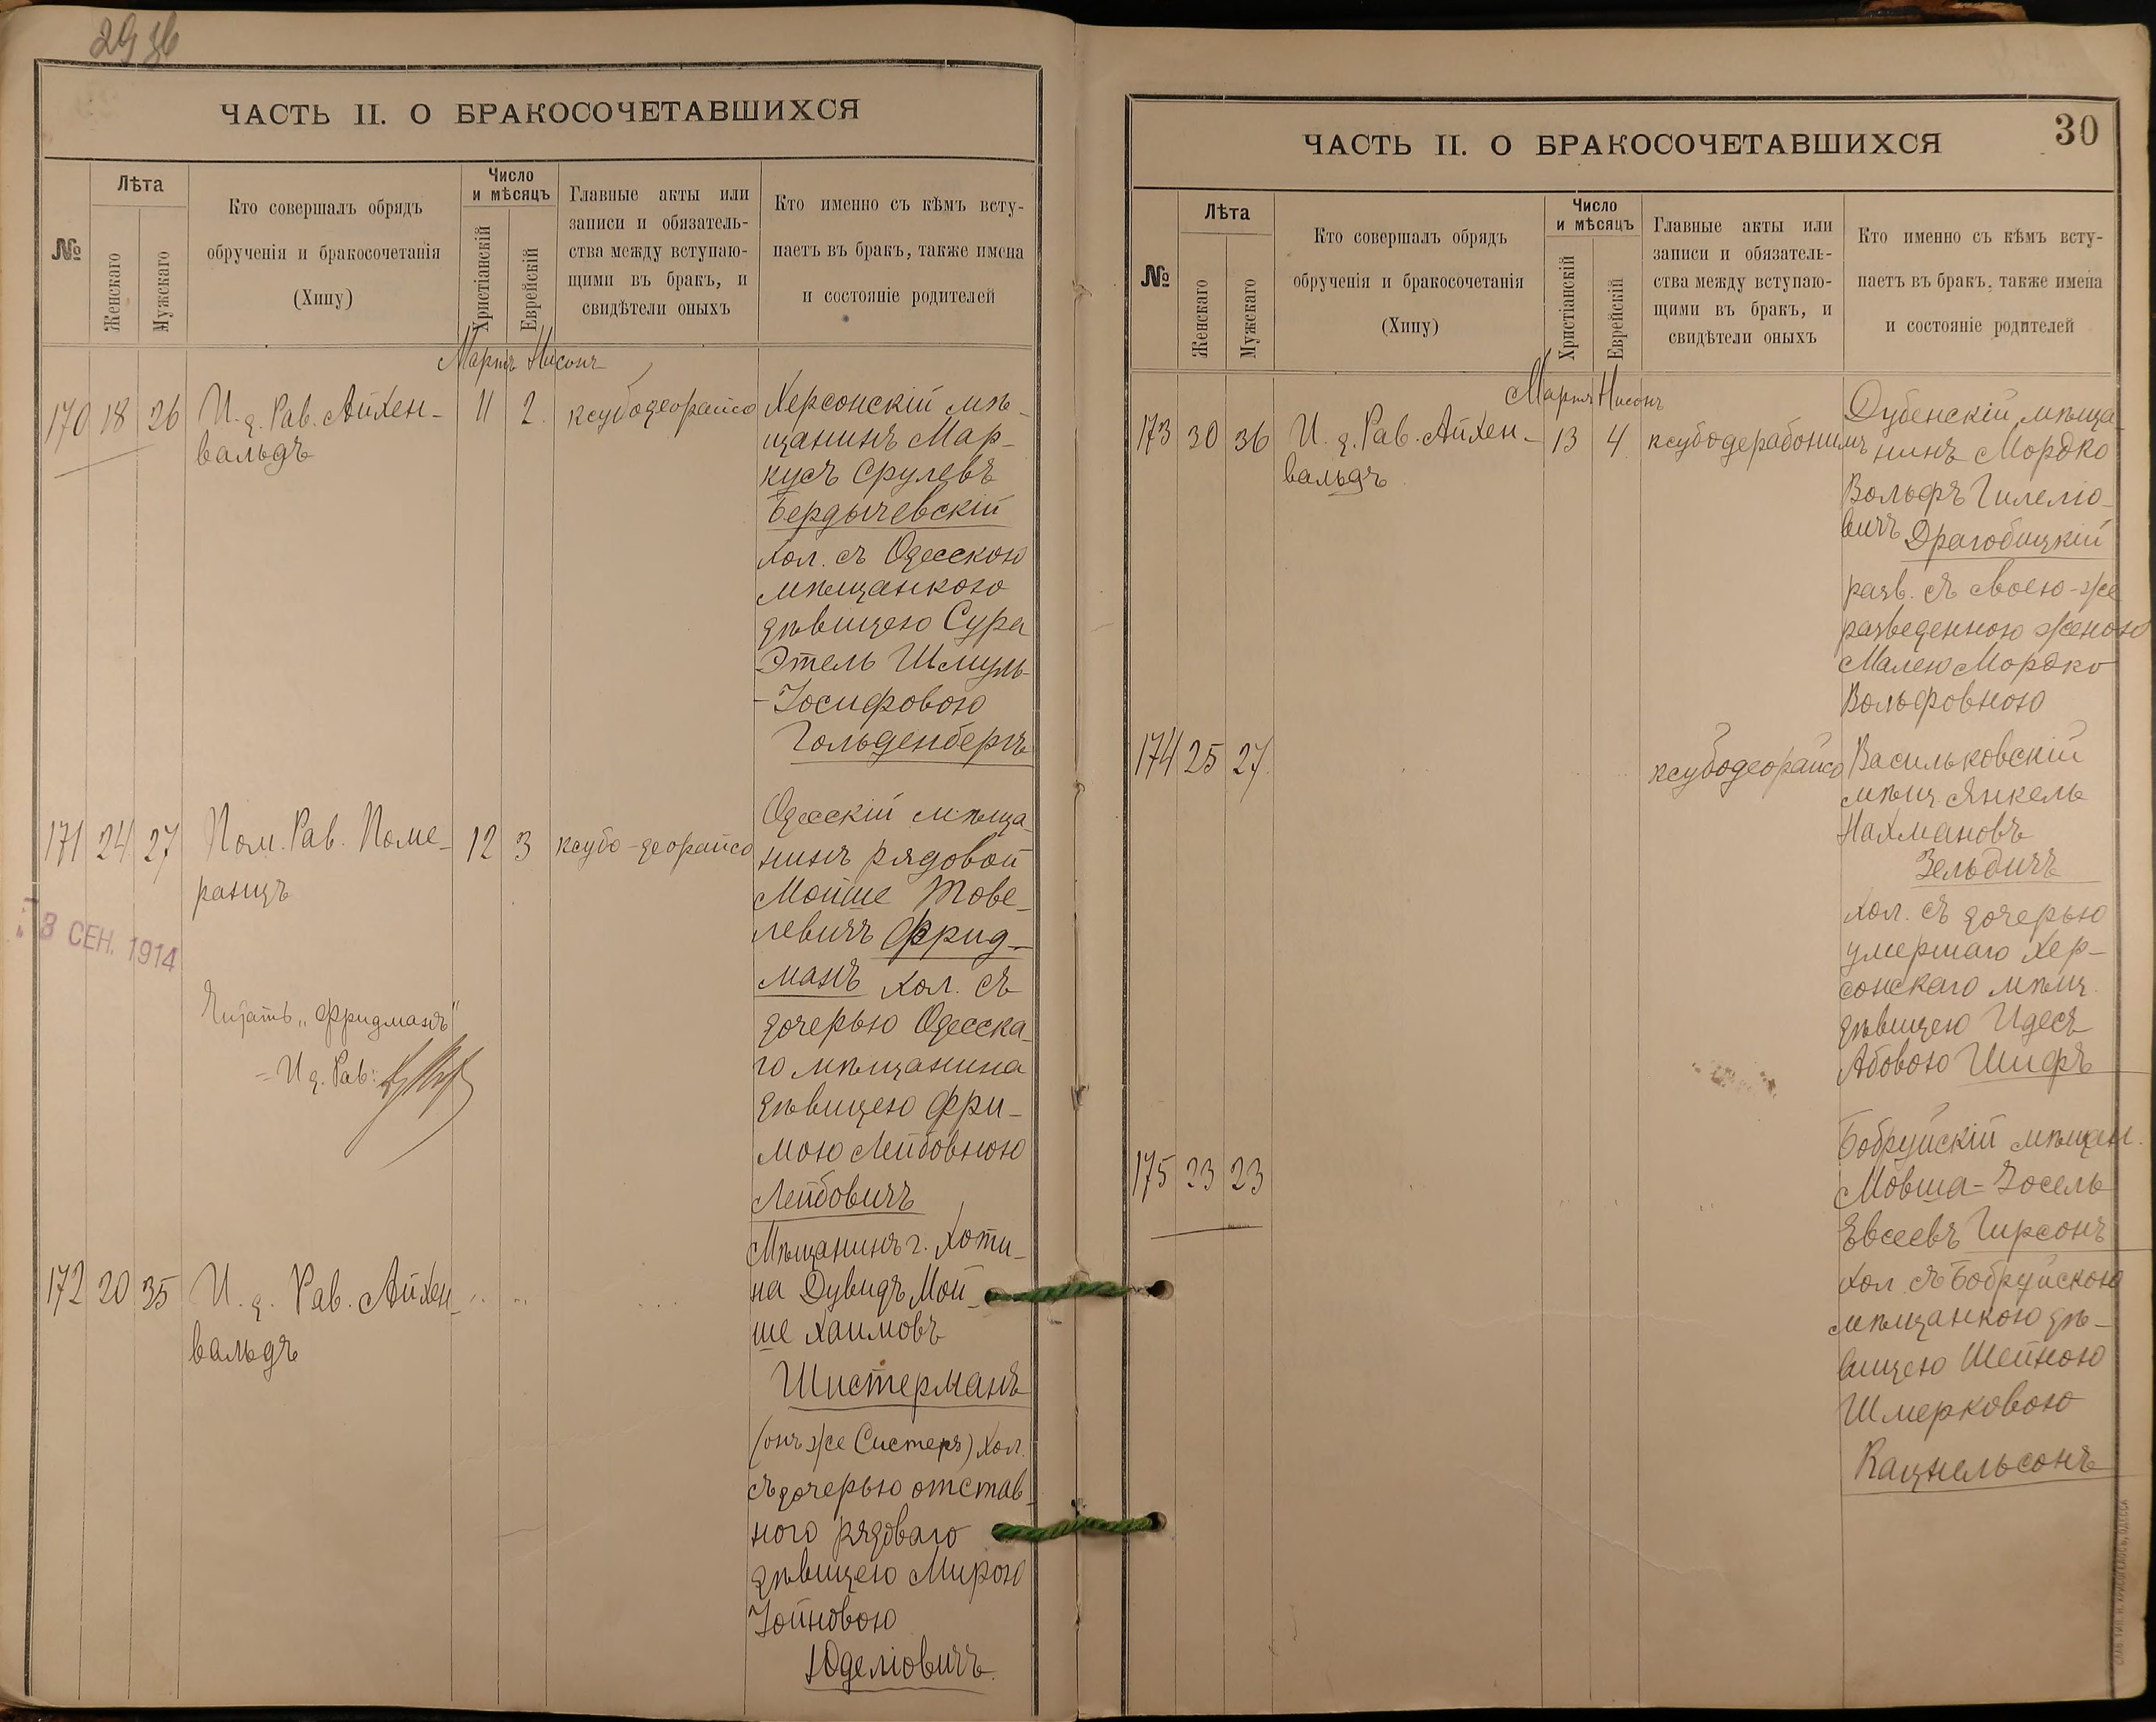 29 зв
ЧАСТЬ II. О БРАКОСОЧЕТАВШИХСЯ
№
Лѣта
Женскаго
Мужскаго
Кто совершалъ обрядъ
обрученія и бракосочетанія
(Хипу)
Число
и мѣсяцъ
Христіанскій
Еврейскій
Главные акты или
записи и обязатель-
ства между вступаю-
щими въ бракъ, и
свидѣтели оныхъ
Кто именно съ кѣмъ всту-
паетъ въ бракъ, также имена
и состояніе родителей
Мартъ Нисонъ
170 18 26 И. д. Рав. Айхен-
вальдъ
11 2. ксубодеорайсо
Херсонскій мѣ-
щанинъ Мар-
кусъ Срулевъ
Бердычевскій
хол. съ Одесскою
мѣщанкою
дѣвицею Сура
Этель Шмуль-
-Іосифовою
Гольденбергъ
171 24 27 Пом. Рав. Поме-
ранцъ
12 3 ксубо-деорайсо
Одесскій мѣща-
нинъ рядовой
Мойше Тове-
левичъ Фрид-
манъ хол. съ
дочерью Одесска-
го мѣщанина
дѣвицею Фри-
мою Лейбовною
Лейбовичъ
3 СЕН. 1914
Читать „Фридманъ"
И. д. Рав:
172 20 35 И. д. Рав. Айхен-
вальдъ
Мѣщанинъ г. Хоти-
на Дувидъ Мой-
ше Хаимовъ
Шистерманъ
(онъ же Систеръ) хол.
съ дочерью отстав-
ного рядоваго
дѣвицею Мирою
Іойновою
Юделіовичъ.
30
ЧАСТЬ II. О БРАКОСОЧЕТАВШИХСЯ
№
Лѣта
Женскаго
Мужскаго
Кто совершалъ обрядъ
обрученія и бракосочетанія
(Хипу)
Число
и мѣсяцъ
Христіанскій
Еврейскій
Главные акты или
записи и обязатель-
ства между вступаю-
щими въ бракъ, и
свидѣтели оныхъ
Кто именно съ кѣмъ всту-
паетъ въ бракъ, также имена
и состояніе родителей
Мартъ Нисонъ
173 30 36 И. д. Рав. Айхен-
вальдъ
13 4 ксубодерабонимъ
Дубенскій мѣща-
нинъ Мордко
Вольфъ Гилеліо-
вичъ Драгобицкій
разв. съ своею-же
разведенною женою
Малею Мордко
Вольфовною
174 25 27. ксубодеорайсо
Васильковскій
мѣщ. Янкель
Нахмановъ
Зельдичъ
хол. съ дочерью
умершаго Хер-
сонскаго мѣщ.
дѣвицею Идесъ
Абовою Шифъ
175 23 23
Бобруйскій мѣщан.
Мовша-Іосель
Евсеевъ Гирсонъ
хол. съ Бобруйскою
мѣщанкою дѣ-
вицею Шейною
Шмерковою
Кацнельсонъ